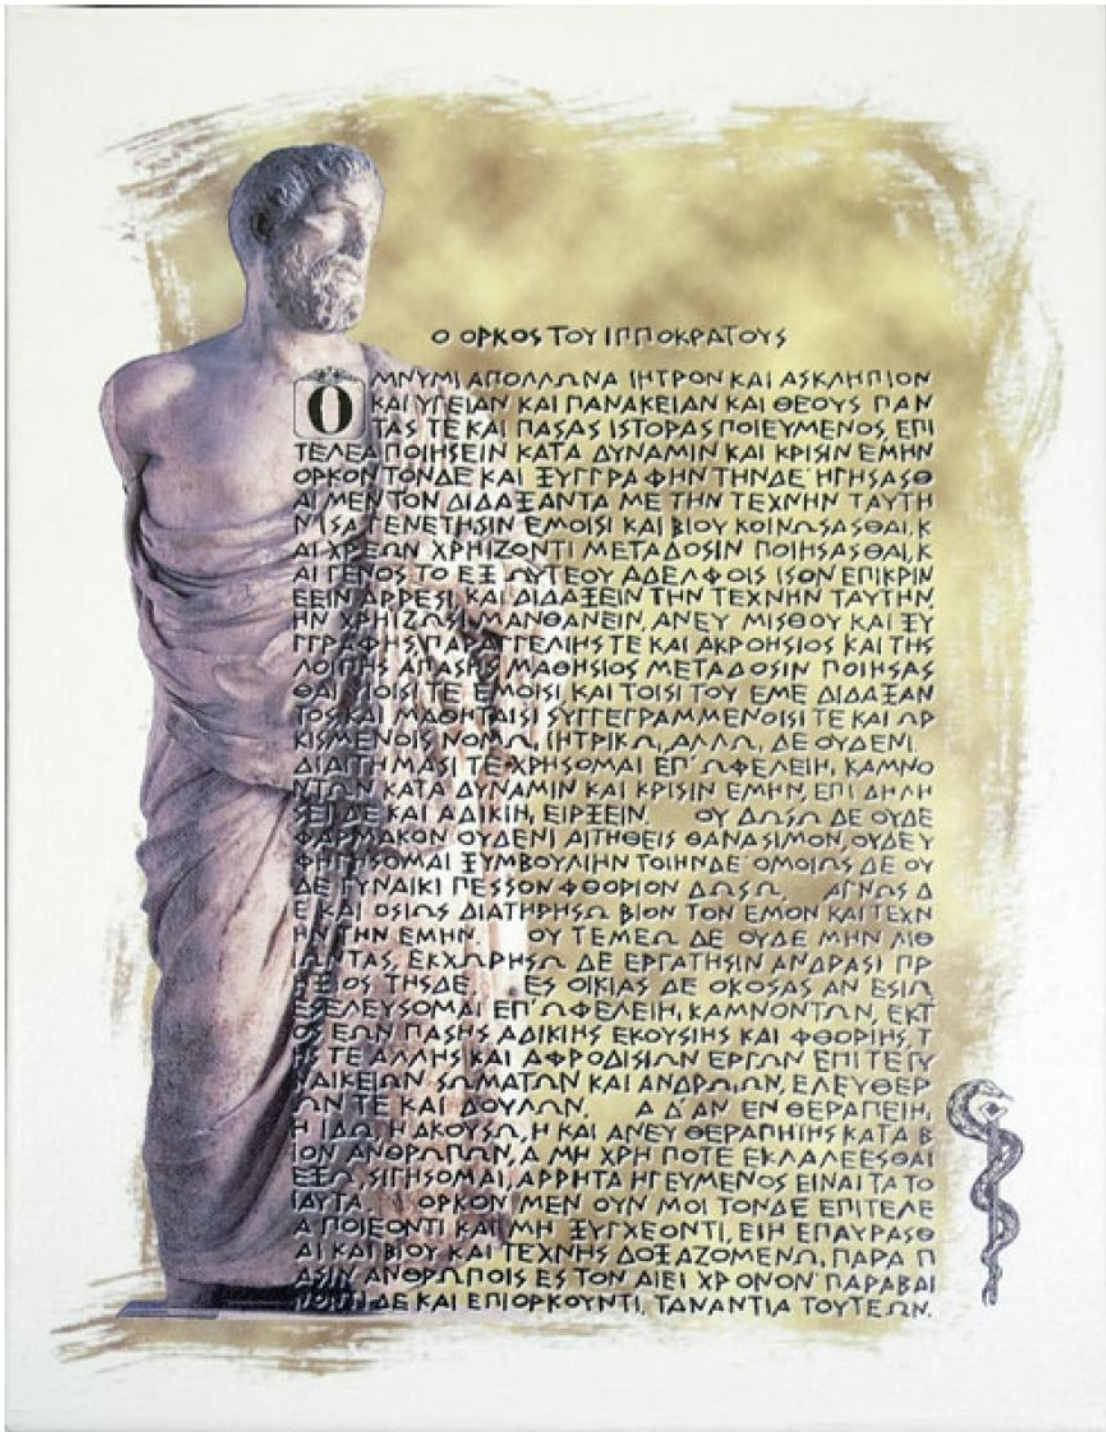 Ο ΟΡΚΟS ΤΟΥ ΙΠΠΟΚΡΑΤΟΥS
ΟΜΝΥΜΙ ΑΠΟΛΛΩΝΑ ΙΗΤΡΟΝ ΚΑΙ ΑSΚΛΗΠΙΟΝ
ΚΑΙ ΥΓΕΙΑΝ ΚΑΙ ΠΑΝΑΚΕΙΑΝ ΚΑΙ ΘΕΟΥS ΠΑΝ
ΤΑS ΤΕ ΚΑΙ ΠΑSΑS ΙSΤΟΡΑS ΠΟΙΕΥΜΕΝΟS, ΕΠΙ
ΤΕΛΕΑ ΠΟΙΗSΕΙΝ ΚΑΤΑ ΔΥΝΑΜΙΝ ΚΑΙ ΚΡΙSΙΝ ΕΜΗΝ
ΟΡΚΟΝ ΤΟΝΔΕ ΚΑΙ ΞΥΓΓΡΑΦΗΝ ΤΗΝΔΕ˙ ΗΓΗSΑSΘ
ΑΙ ΜΕΝ ΤΟΝ ΔΙΔΑΞΑΝΤΑ ΜΕ ΤΗΝ ΤΕΧΝΗΝ ΤΑΥΤΗ
Ν ΙSΑ ΓΕΝΕΤΗSΙΝ ΕΜΟΙSΙ ΚΑΙ ΒΙΟΥ ΚΟΙΝΩSΑSΘΑΙ, Κ
ΑΙ ΧΡΕΩΝ ΧΡΗΙΖΟΝΤΙ ΜΕΤΑΔΟSΙΝ ΠΟΙΗSΑSΘΑΙ, Κ
ΑΙ ΓΕΝΟS ΤΟ ΕΞ ΩΥΤΕΟΥ ΑΔΕΛΦΟΙS ΙSΟΝ ΕΠΙΚΡΙΝ
ΕΕΙΝ ΑΡΡΕSΙ, ΚΑΙ ΔΙΔΑΞΕΙΝ ΤΗΝ ΤΕΧΝΗΝ ΤΑΥΤΗΝ,
ΗΝ ΧΡΗΙΖΩSΙ ΜΑΝΘΑΝΕΙΝ, ΑΝΕΥ ΜΙSΘΟΥ ΚΑΙ ΞΥ
ΓΓΡΑΦΗS, ΠΑΡΑΓΓΕΛΙΗS ΤΕ ΚΑΙ ΑΚΡΟΗSΙΟS ΚΑΙ ΤΗS
ΛΟΙΠΗS ΑΠΑSΗS ΜΑΘΗSΙΟS ΜΕΤΑΔΟSΙΝ ΠΟΙΗSΑS
ΘΑΙ ΥΙΟΙSΙ ΤΕ ΕΜΟΙSΙ ΚΑΙ ΤΟΙSΙ ΤΟΥ ΕΜΕ ΔΙΔΑΞΑΝ
ΤΟS ΚΑΙ ΜΑΘΗΤΑΙSΙ SΥΓΓΕΓΡΑΜΜΕΝΟΙSΙ ΤΕ ΚΑΙ ΩΡ
ΚΙSΜΕΝΟΙS ΝΟΜΩ, ΙΗΤΡΙΚΩ, ΑΛΛΩ, ΔΕ ΟΥΔΕΝΙ.
ΔΙΑΙΤΗΜΑSΙ ΤΕ ΧΡΗSΟΜΑΙ ΕΠ' ΩΦΕΛΕΙΗ, ΚΑΜΝΟ
ΝΤΩΝ ΚΑΤΑ ΔΥΝΑΜΙΝ ΚΑΙ ΚΡΙSΙΝ ΕΜΗΝ, ΕΠΙ ΔΗΛΗ
SΕΙ ΔΕ ΚΑΙ ΑΔΙΚΙΗ, ΕΙΡΞΕΙΝ. ΟΥ ΔΩSΩ ΔΕ ΟΥΔΕ
ΦΑΡΜΑΚΟΝ ΟΥΔΕΝΙ ΑΙΤΗΘΕΙS ΘΑΝΑSΙΜΟΝ, ΟΥΔΕ Υ
ΦΗΓΗSΟΜΑΙ ΞΥΜΒΟΥΛΙΗΝ ΤΟΙΗΝΔΕ˙ ΟΜΟΙΩS ΔΕ ΟΥ
ΔΕ ΓΥΝΑΙΚΙ ΠΕSSΟΝ ΦΘΟΡΙΟΝ ΔΩSΩ. ΑΓΝΩS Δ
Ε ΚΑΙ ΟSΙΩS ΔΙΑΤΗΡΗSΩ ΒΙΟΝ ΤΟΝ ΕΜΟΝ ΚΑΙ ΤΕΧΝ
ΗΝ ΤΗΝ ΕΜΗΝ. ΟΥ ΤΕΜΕΩ ΔΕ ΟΥΔΕ ΜΗΝ ΛΙΘ
ΙΩΝΤΑS, ΕΚΧΩΡΗSΩ ΔΕ ΕΡΓΑΤΗSΙΝ ΑΝΔΡΑSΙ ΠΡ
ΗΞΙΟS ΤΗSΔΕ. ΕS ΟΙΚΙΑS ΔΕ ΟΚΟSΑS ΑΝ ΕSΙΩ
ΕSΕΛΕΥSΟΜΑΙ ΕΠ' ΩΦΕΛΕΙΗ, ΚΑΜΝΟΝΤΩΝ, ΕΚΤ
ΟS ΕΩΝ ΠΑSΗS ΑΔΙΚΙΗS ΕΚΟΥSΙΗS ΚΑΙ ΦΘΟΡΙΗS, Τ
ΗS ΤΕ ΑΛΛΗS ΚΑΙ ΑΦΡΟΔΙSΙΩΝ ΕΡΓΩΝ ΕΠΙ ΤΕ ΓΥ
ΝΑΙΚΕΙΩΝ SΩΜΑΤΩΝ ΚΑΙ ΑΝΔΡΩΙΩΝ, ΕΛΕΥΘΕΡ
ΩΝ ΤΕ ΚΑΙ ΔΟΥΛΩΝ. Α Δ' ΑΝ ΕΝ ΘΕΡΑΠΕΙΗ,
Η ΙΔΩ, Η ΑΚΟΥSΩ, Η ΚΑΙ ΑΝΕΥ ΘΕΡΑΠΗΙΗS ΚΑΤΑ Β
ΙΟΝ ΑΝΘΡΩΠΩΝ, Α ΜΗ ΧΡΗ ΠΟΤΕ ΕΚΛΑΛΕΕSΘΑΙ
ΕΞΩ, SΙΓΗSΟΜΑΙ, ΑΡΡΗΤΑ ΗΓΕΥΜΕΝΟS ΕΙΝΑΙ ΤΑ ΤΟ
ΙΑΥΤΑ. ΟΡΚΟΝ ΜΕΝ ΟΥΝ ΜΟΙ ΤΟΝΔΕ ΕΠΙΤΕΛΕ
Α ΠΟΙΕΟΝΤΙ ΚΑΙ ΜΗ ΞΥΓΧΕΟΝΤΙ, ΕΙΗ ΕΠΑΥΡΑSΘ
ΑΙ ΚΑΙ ΒΙΟΥ ΚΑΙ ΤΕΧΝΗS ΔΟΞΑΖΟΜΕΝΩ, ΠΑΡΑ Π
ΑSΙΝ ΑΝΘΡΩΠΟΙS ΕS ΤΟΝ ΑΙΕΙ ΧΡΟΝΟΝ˙ ΠΑΡΑΒΑΙ
ΝΟΝΤΙ ΔΕ ΚΑΙ ΕΠΙΟΡΚΟΥΝΤΙ, ΤΑΝΑΝΤΙΑ ΤΟΥΤΕΩΝ.